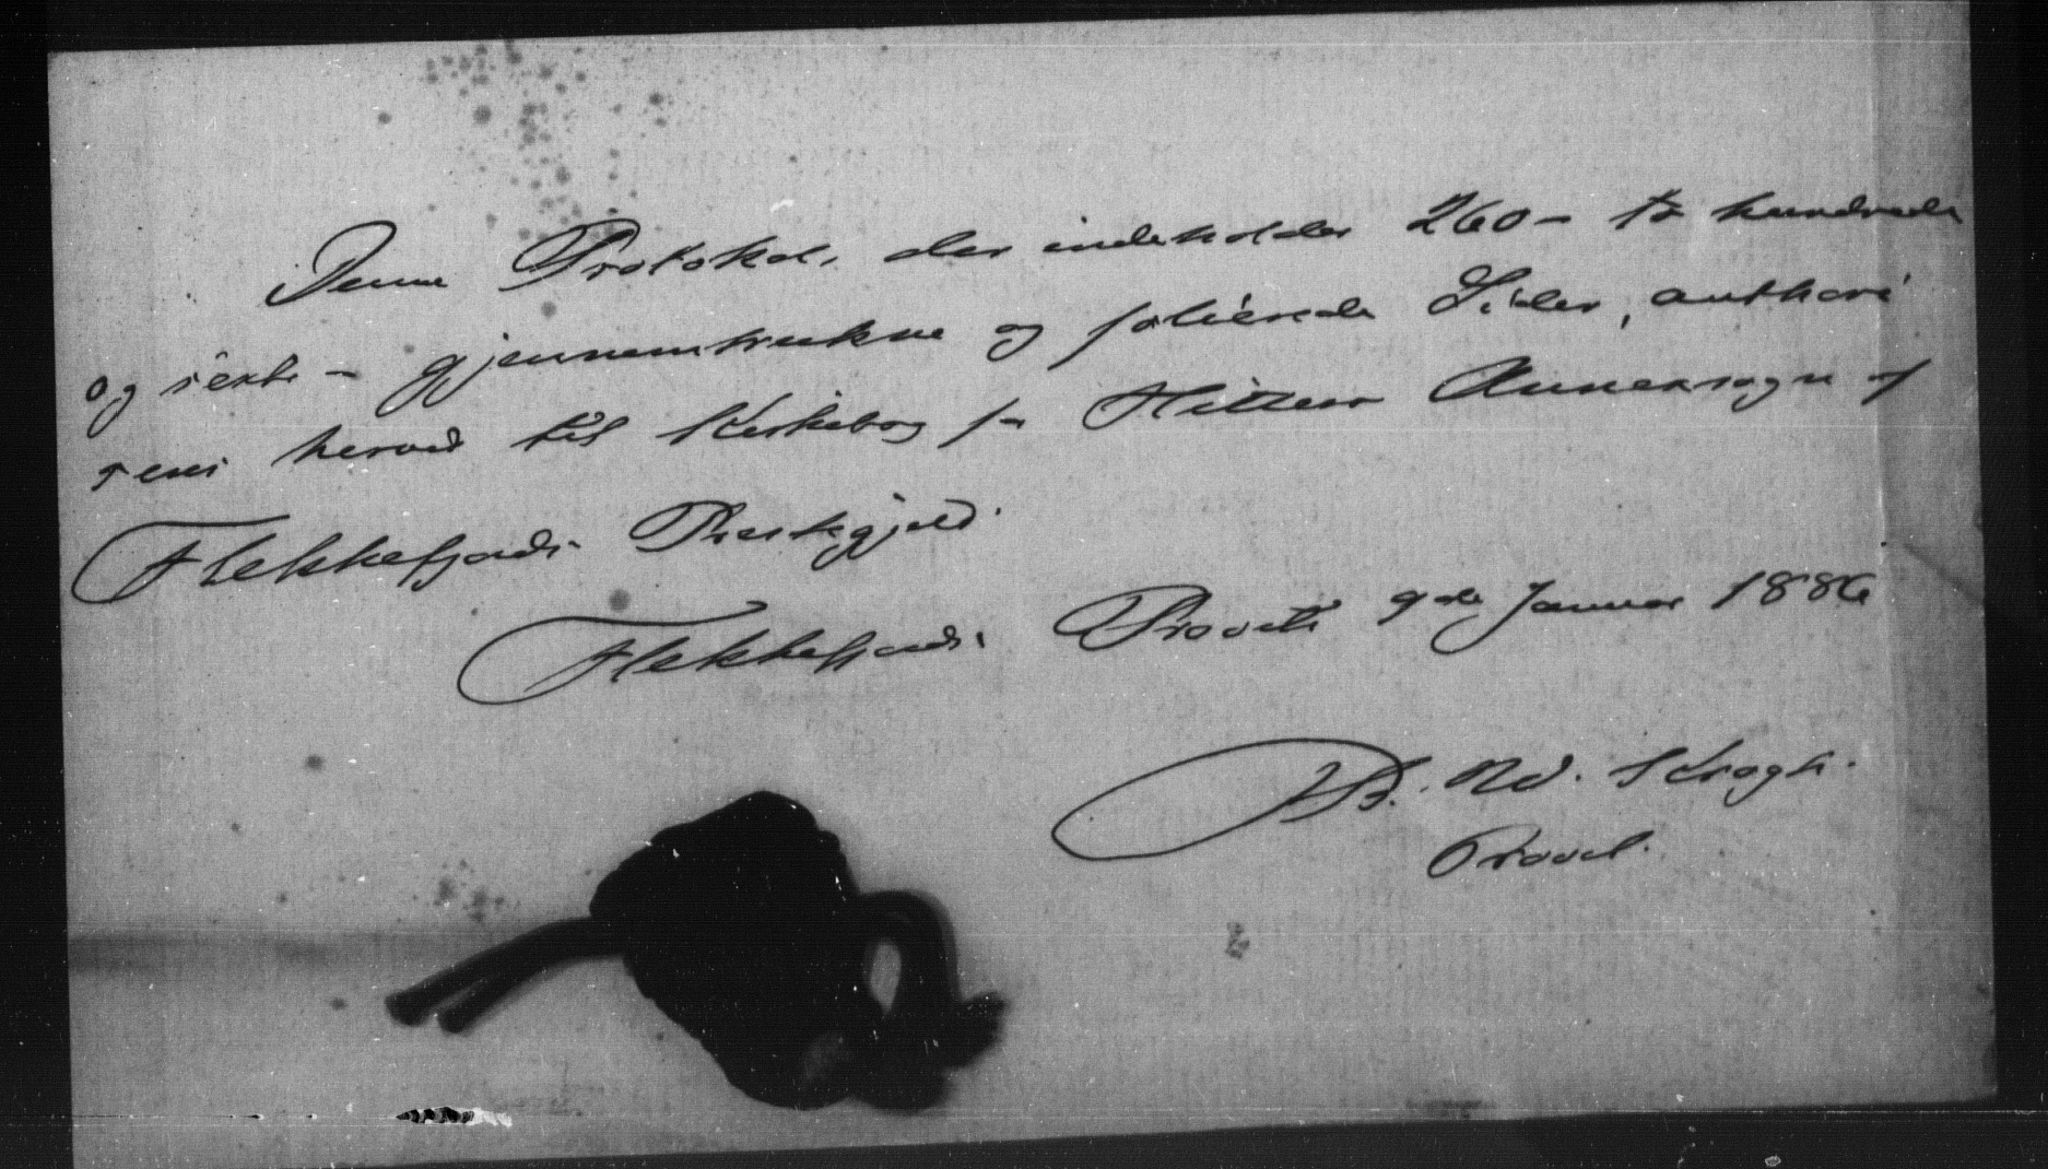 Denne Protokol, der indeholder 260 – to hundrede
og sexti – gjennemtrukne og folierede Sider, authori
seres herved til Kirkebog for Hitterø Annexsogn af
Flekkefjords Præstegjeld.
Flekkefjords Provsti 9de Januar 1886
Krogh.
Provst.